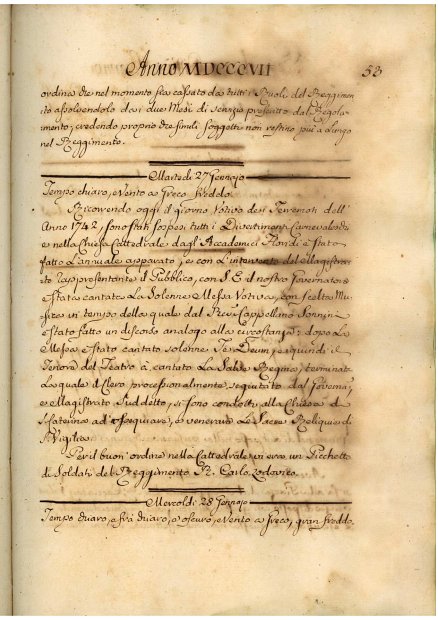 Anno MDCCCVII 53
ordina che nel momento sia cassato da tutti i Ruoli del Reggimen
to assolvendolo dai due Mesi di servizio prescritto dal Regola
mento, credendo proprio che simili soggetti non restino più a lungo
nel Reggimento.
Martedi 27 Gennajo
Tempo chiaro, e Vento a Greco freddo.
Ricorrendo oggi il giorno Votivo dei Terremoti dell'
Anno 1742, sono stati sospesi tutti i Divertimenti Carnevaleschi
e nella Chiesa Cattedrale dagl'Accademici è stato
fatto l'annuale apparato, e con l'intervento del Magistra
to rappresentante il Pubblico, con S. E. il nostro Governatore
è stata cantata la Solenne Messa Votiva, con scelta Mu
sica in tempo della quale dal Cappellano
è stato fatto un discorso analogo alla circostanza; dopo la
Messa è stato cantato solenne Te Deum, e quindi il
Tenore del Teatro à cantato la Salve Regina, terminata
la quale il Clero processionalmente seguitato dal
e Magistrato suddetto, si sono condotti alla Chiesa di
S. Caterina ad, e venerare le Sacre Reliquie di
S. Vigilia.
Per il buon'ordine nella Cattedrale vi era un Picchetto
di Soldati del Reggimento R. Carlo Lodovico.
Mercoldi 28 Gennajo
Tempo chiaro, e fra chiaro, e oscuro, e Vento a Greco, gran freddo.